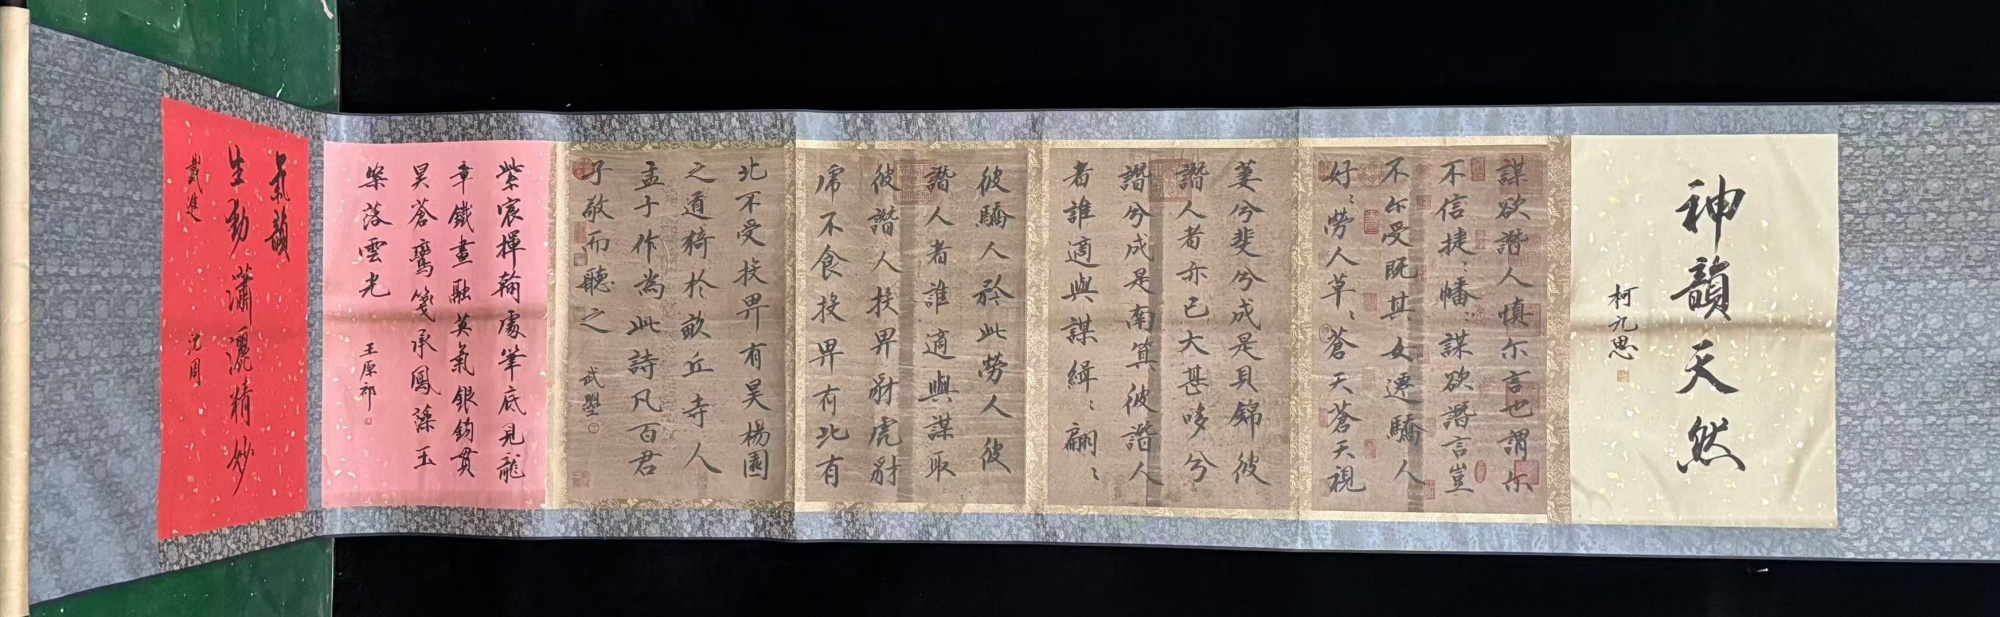 神韻天然
柯九思
謀欲譖人慎尔言也謂尔
不信捷〻幡〻謀欲譖言豈
不尔受既其女遷驕人
好〻勞人草〻蒼天蒼天視
萋兮斐兮成是貝錦彼
譖人者亦已大甚哆兮
譖兮成是南箕彼譖人
者誰適與謀緝〻翩〻
彼驕人矜此勞人彼
譖人者誰適與謀取
彼譖人投畀豺虎豺
虎不食投畀有北有
北不受投畀有昊楊園
之道猗於畝丘寺人
孟子作為此詩凡百君
子敬而聽之
武曌
紫宸揮翰處筆底見龍
章鐵畫融英氣銀鉤貫
昊蒼鸞箋承鳳藻玉
築落雲光
王原祁
氣韻
生動瀟灑精妙
戴進
沈周